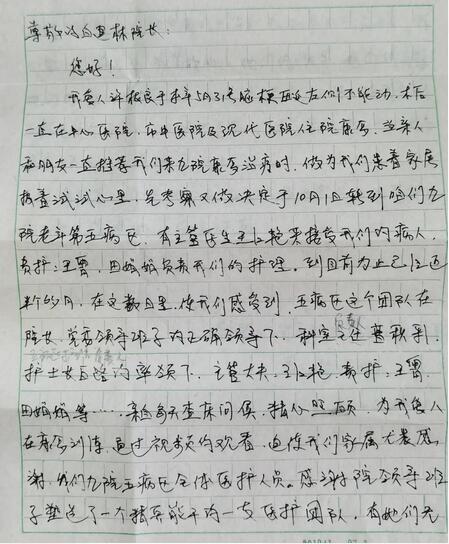 尊敬的白连林院长:
您好!
我家人许根良于本年5月31号脑梗西边左侧不能动.术后
一直在中心医院,市中医院及现代医院住院康复,当亲人
和朋友一直推荐我们来九院康复治疗时,做为我们患者家属
抱着试试心里,先考察又做决定于10月1日转到咱们九
院老年第五病区,有主管医生王红艳来接受我们的病人,
责护:王 田娟娟负责我们的护理,到目前为止已经近
半个多月,在这数日里,使我们感受到,五病区这个团队在
院长,党委领导班子的正确领导下,科室主任 秋利
负责人
护士长 的率领下,主管大夫,王红艳,责护:王
田娟娟等……亲自每天查床问候,精心照顾,为我家人
在康复训练,通过视频的观看,迫使我们家属尤甚感
谢,我们九院五病区全体医护人员.感谢院领导班
子塑造了一个精兵能干的一支医护团队,有她们无